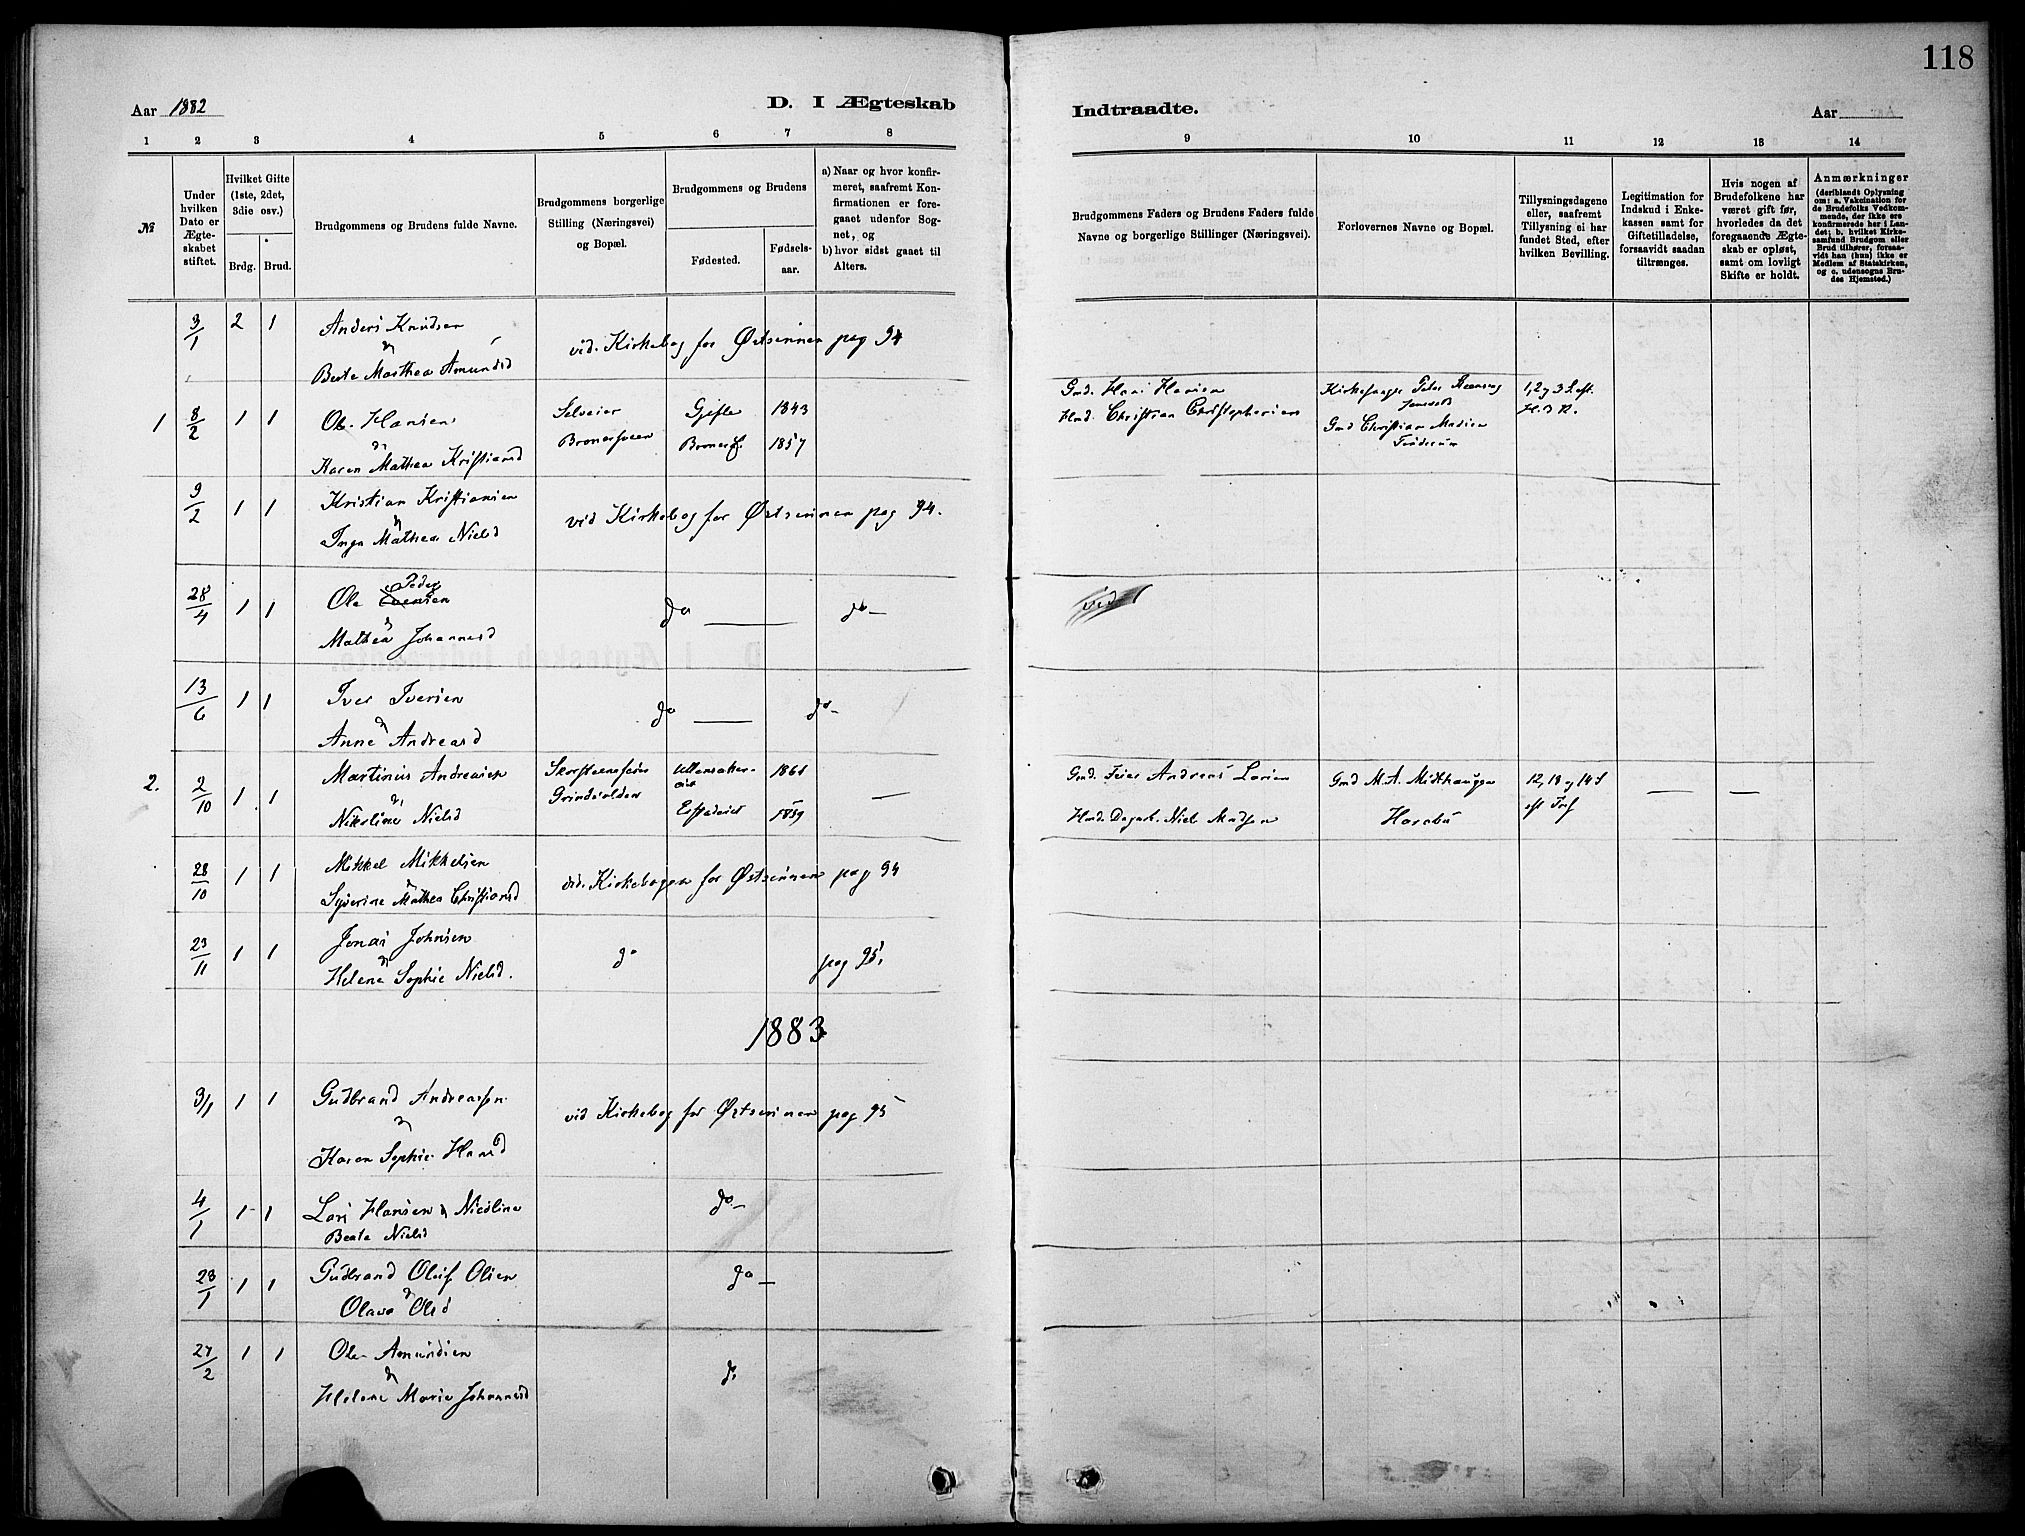 118
Aar 1882
D. I Ægteskab
Indtraadte.
Aar
1
2
3
4
5
6
7
8
9
10
11
12
13
14
№
Under
hvilken
Dato er
Ægte-
skabet
stiftet.
Hvilket Gifte
(1ste, 2det,
3die osv.)
Brdg.
Brud.
Brudgommens og Brudens fulde Navne.
Brudgommens borgerlige
Stilling (Næringsvei)
og Bopæl.
Brudgommens og Brudens
Fødested.
Fødsels-
aar.
a) Naar og hvor konfir-
meret, saafremt Kon-
firmationen er fore-
gaaet udenfor Sog-
net, og
b) hvor sidst gaaet til
Alters.
Brudgommens Faders og Brudens Faders fulde
Navne og borgerlige Stillinger (Næringsvei).
Forlovernes Navne og Bopæl.
Tillysningsdagene
eller, saafremt
Tillysning ei har
fundet Sted, efter
hvilken Bevilling.
Legitimation for
Indskud i Enke-
kassen samt for
Giftetilladelse,
forsaavidt saadan
tiltrænges.
Hvis nogen af
Brudefolkene har
været gift før,
hvorledes da det
foregaaende Ægte-
skab er opløst,
samt om lovligt
Skifte er holdt.
Anmærkninger
(deriblandt Oplysning
om: a. Vakcination for
de Brudefolks Vedkom-
mende, der ikke ere
konfirmerede her i Lan-
det; b. hvilket Kirke-
samfund Brudgom eller
Brud tilhører, forsaa-
vidt han (hun) ikke er
Medlem af Statskirken,
og c. udensogns Bru-
des Hjemsted.)
3/1 2 1 Anders Knudsen
Berte Marthea Amundsd
vid. Kirkebog for Østsinnen pag 94
1 8/2 1 1 Ole Hansen
Karen Mathea Kristiansd
Selveier
Gjøfle 1843
1857
Gmd. Hans Hansen
Hmd. Christian Christophersen
Kirkesanger Peter
Gmd Christian Madsen
1, 2 og 3 S. eft.
H. 3 K.
9/2 1 1 Kristian Kristiansen
Inga Mathea Nielsd
vid Kirkebog for Østsinnen pag 94.
28/4 1 1 Ole Peders
Mathea Johannesd
do do
vid
13/6 1 1 Iver Iversen
Anne Andreasd
do do
2. 2/10 1 1 Martinus Andreasen
Nikoline Nielsd
Ullensaker
1859
Andreas Larsen
Niels Madsen
Gmd M. A. Midthaugen
12, 13 og 14 S
eft Tref
28/10 1 1 Mikkel Mikkelsen
Syverine Mathea Christiansd
vid. Kirkebogen for Østsinnen pag 94
23/11 1 1 Jonas Johnsen
Helene Sophie Nielsd.
do pag 95.
1883
3/1 1 1 Gudbrand Andreassen
Karen Sophie Hansd
vid Kirkebog for Østsinnen pag 95
4/1 1 1 Lars Hansen & Nicoline
Beate Nielsd
do
23/1 1 1 Gudbrand Oluf Olsen
Olava Olsd
do
27/2 1 1 Ole Amundsen
Helene Marie Johannesd
do